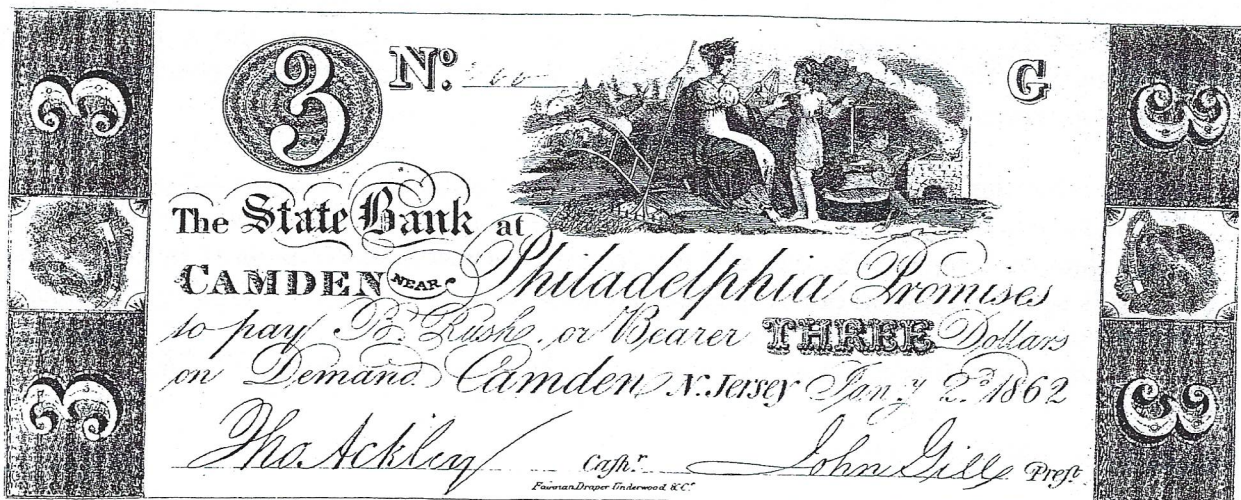 3 3 Nº. G 3
The State Bank at
CAMDEN NEAR Philadelphia Promises
to pay B. Rush, or Bearer THREE Dollars
on Demand Camden N. Jersey Jany. 2d. 1862
3 Tho. Ackley Cashr. John Gill Prest. 3
Fairman Draper Underwood & Co.